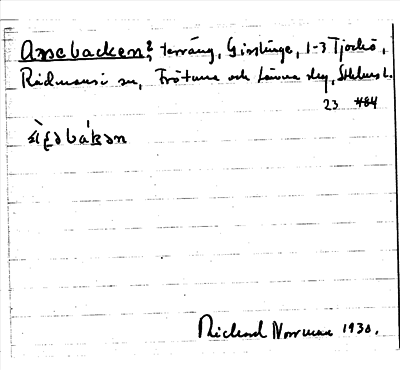 Assebacken?, terräng, Gisslinge, 1-3 Tjockö,
Rådmansö sn, Frötuna och Länna slg, Sthlms l.
23 484
Richard Norrman 1930.